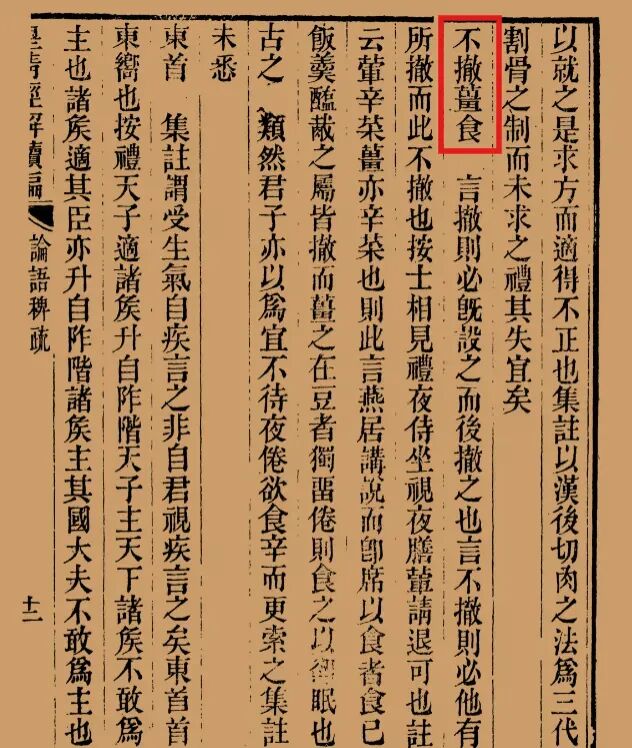 以就之是求方而適得不正也集註以漢後切肉之法爲三代
割骨之制而未求之禮其失宜矣
不撤薑食 言撤則必旣設之而後撤之也言不撤則必他有
所撤而此不撤也按士相見禮夜侍坐視夜膳葷請退可也註
云葷辛菜薑亦辛菜也則此言燕居講說而卽席以食者食已
飯羹醢胾之屬皆撤而薑之在豆者獨畱倦則食之以却眠也
古之 類然君子亦以爲宜不待夜倦欲食辛而更索之集註
未悉
東首 集註謂受生氣自疾言之非自君視疾言之矣東首首
東嚮也按禮天子適諸矦升自阼階天子主天下諸矦不敢爲
主也諸矦適其臣亦升自阼階諸矦主其國大夫不敢爲主也
皇淸經解續編 論語稗疏 十二